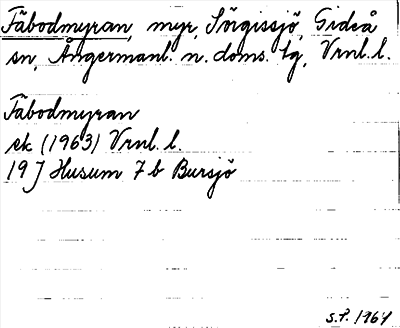 Fäbodmyran, myr, Sörgissjö, Gideå
sn, Ångermanl. n. doms. tg, Vrnl. l.
Fäbodmyran
ek (1963) Vrnl. l.
19 J Husum 7 b Bursjö
S.P. 1964